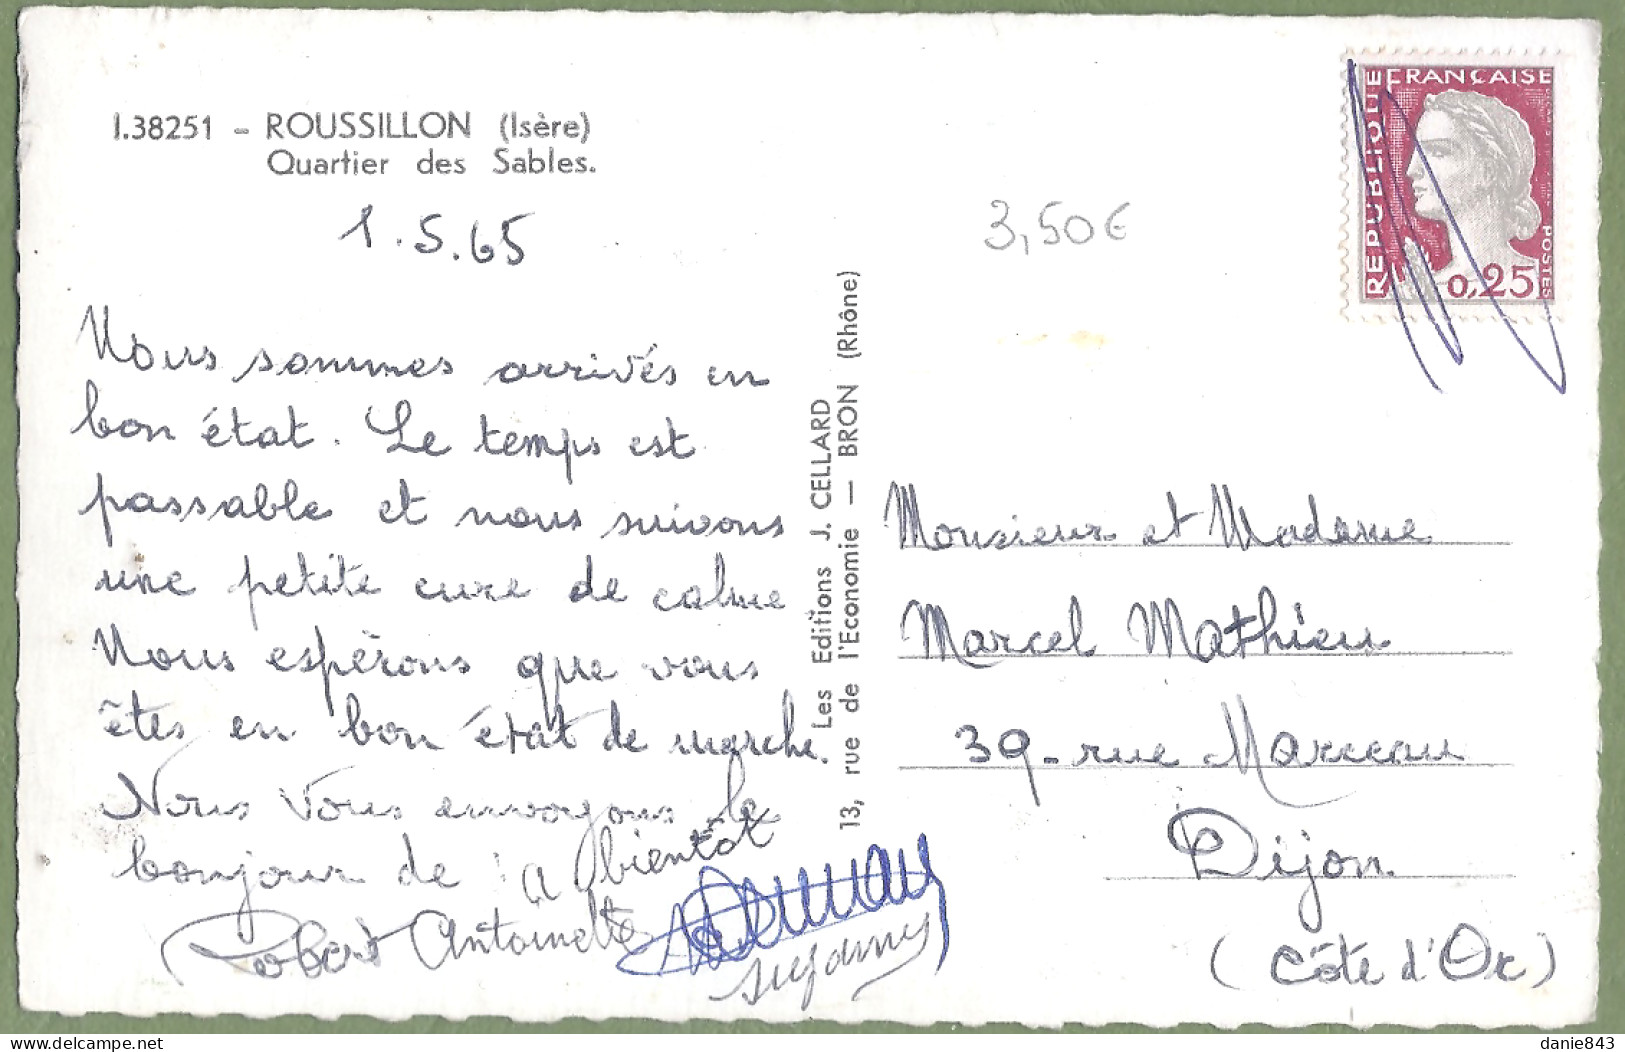 I.38251 - ROUSSILLON (Isère)
Quartier des Sables.
1.5.65
Nous sommes arrivés en
bon état. Le temps est
passable et nous suivons
une petite cure de calme
Nous espérons que vous
êtes en bon état de marche.
Nous vous envoyons le
bonjour de : a bientôt
Robert Antoinette
Suzanne
Les Editions J. CELLARD
13, rue de l'Economie — BRON (Rhône)
3,50€
REPUBLIQUE FRANÇAISE
POSTES
0,25
Monsieur et Madame
Marcel Mathieu
39 - rue Marceau
Dijon
(Côte d'Or)
danie843